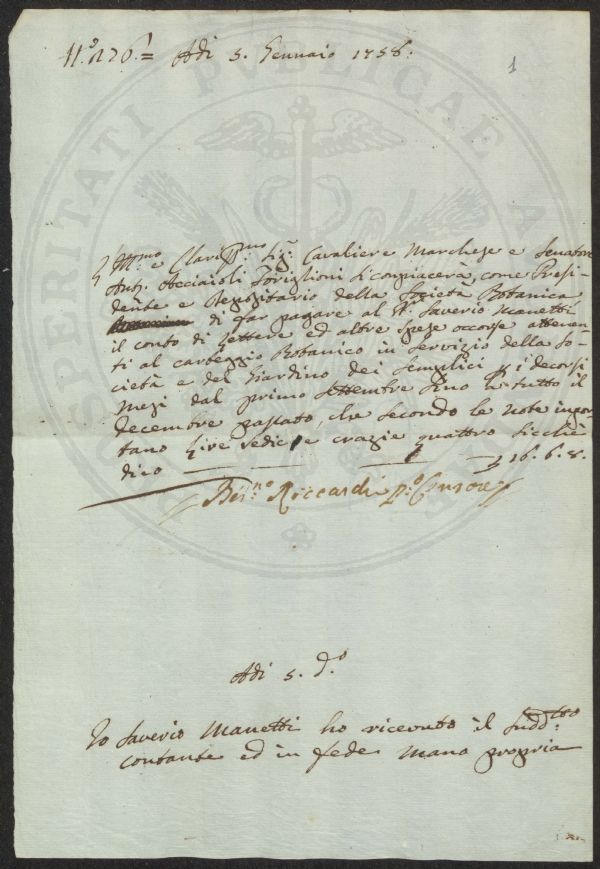 N.º 126.= Adi 5. Gennaio 1758.
1
Ill.mo e Clariss.mo Sig.r Cavaliere Marchese e Senatore
Ant.o Acciaioli Toriglioni si compiacerà, come Presi-
dente e Depositario della Società Botanica,
di far pagare al Sr. Saverio Manetti
il conto di Lettere ed altre spese occorse attenen-
ti al carteggio Botanico in servizio della So-
cietà e del Giardino dei Semplici p i decorsi
Mesi dal primo Settembre sino a tutto il
decembre passato, che secondo le note impor-
tano Lire sedici e crazie quattro sicchè
dico ——— ——— 16.6.8.
Ber.no Riccardi P.o Censore
PROSPERITATI PVBLICAE
Adi 5. d.o
Io Saverio Manetti ho ricevuto il sudd.tto
contante ed in fede mano propria